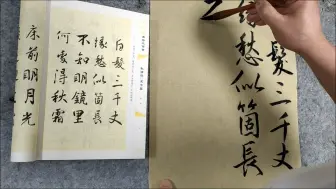 白髮三千丈
緣愁似箇長
不知明鏡里
何處得秋霜
床前明月光
髮三千丈
緣愁似箇長